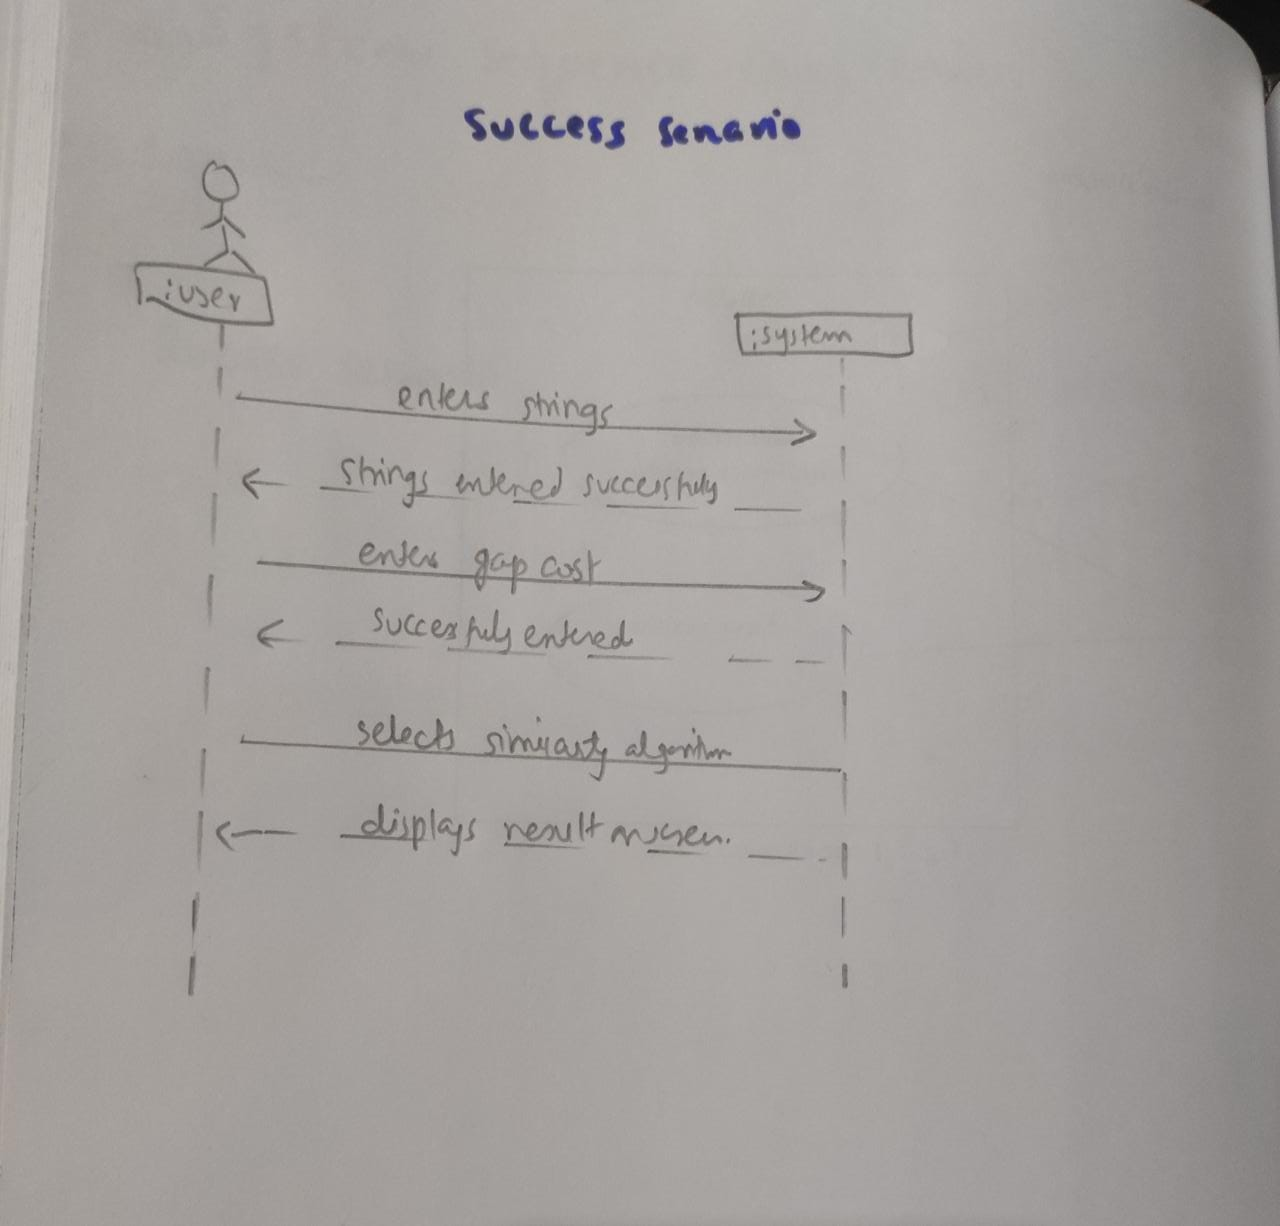 Success Senario
:user
:system
enters strings
strings entered successfully
enters gap cost
successfully entered
selects similarity algorithm
displays result